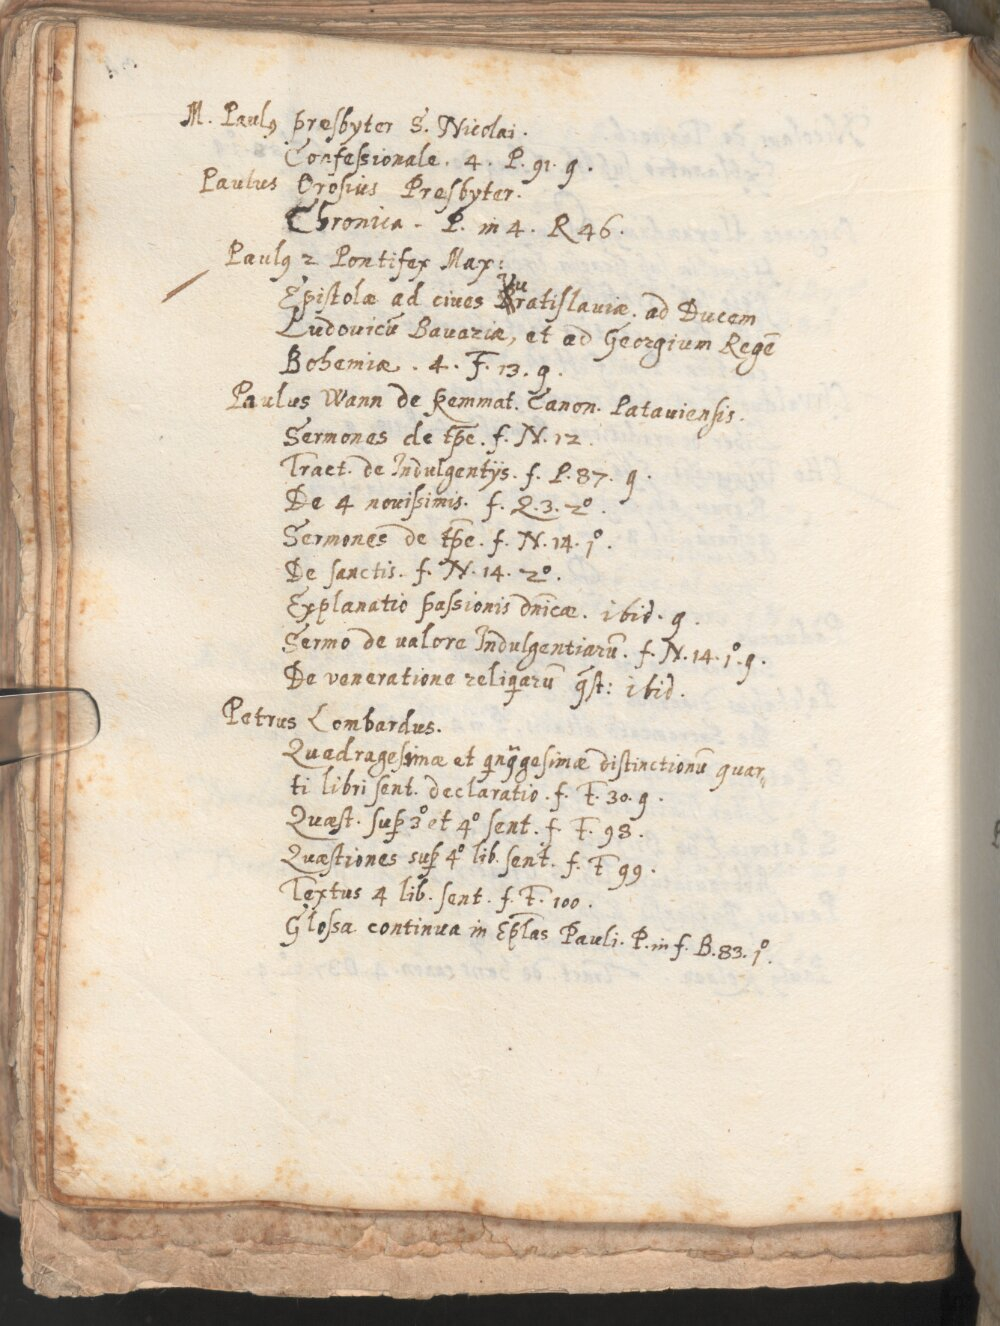 M. Paulꝯ presbyter S. Nicolai.
Confessionale. 4. P. 91. q.
Paulus Orosius Presbyter.
Chronica - P. in 4. R 46.
Paulꝯ 2 Pontifex Max:
Epistolæ ad ciues Vuratislauiæ. ad Ducem
Ludovicū Bavariæ, et ad Georgium Regē
Bohemiæ. 4. F. 13. q.
Paulus Wann de Kemmat. Canon. Patauiensis.
Sermones de tp̄e. f. N. 12.
Tract. de Indulgentijs. f. P. 87. q.
De 4 nouissimis. f. Q. 3. 2º.
Sermones de tp̄e. f. N. 14. 1º.
De sanctis. f. N. 14. 2º.
Explanatio passionis dn̄icæ. ibid. q.
Sermo de valore Indulgentiarū. f. N. 14. 1º. q.
De veneratione reliq̄arū q̄st: ibid.
Petrus Lombardus.
Quadragesimæ et qnq̄gesimæ distinctionū quar-
ti libri sent. declaratio. f. F. 30. q.
Quæst. sup̄ 3º et 4º sent. f. F. 98.
Quæstiones sup̄ 4º lib. sent. f. F 99.
Textus 4 lib. sent. f. F. 100.
Glossa continua in Ep̄las Pauli. P. in f. B. 83. 1º.